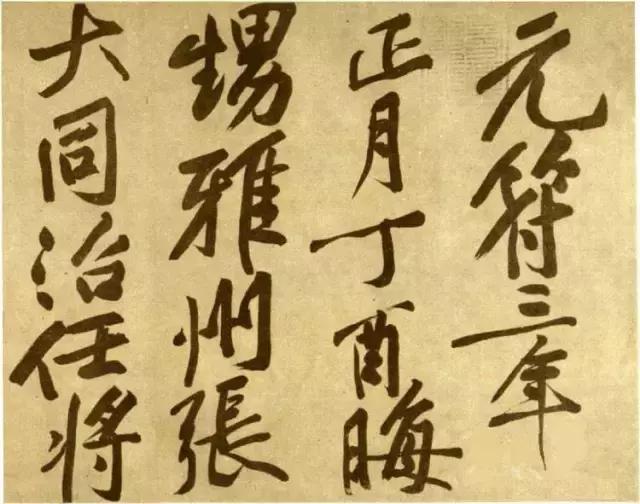 元符三年
正月丁酉晦
甥雅州張
大同治任将